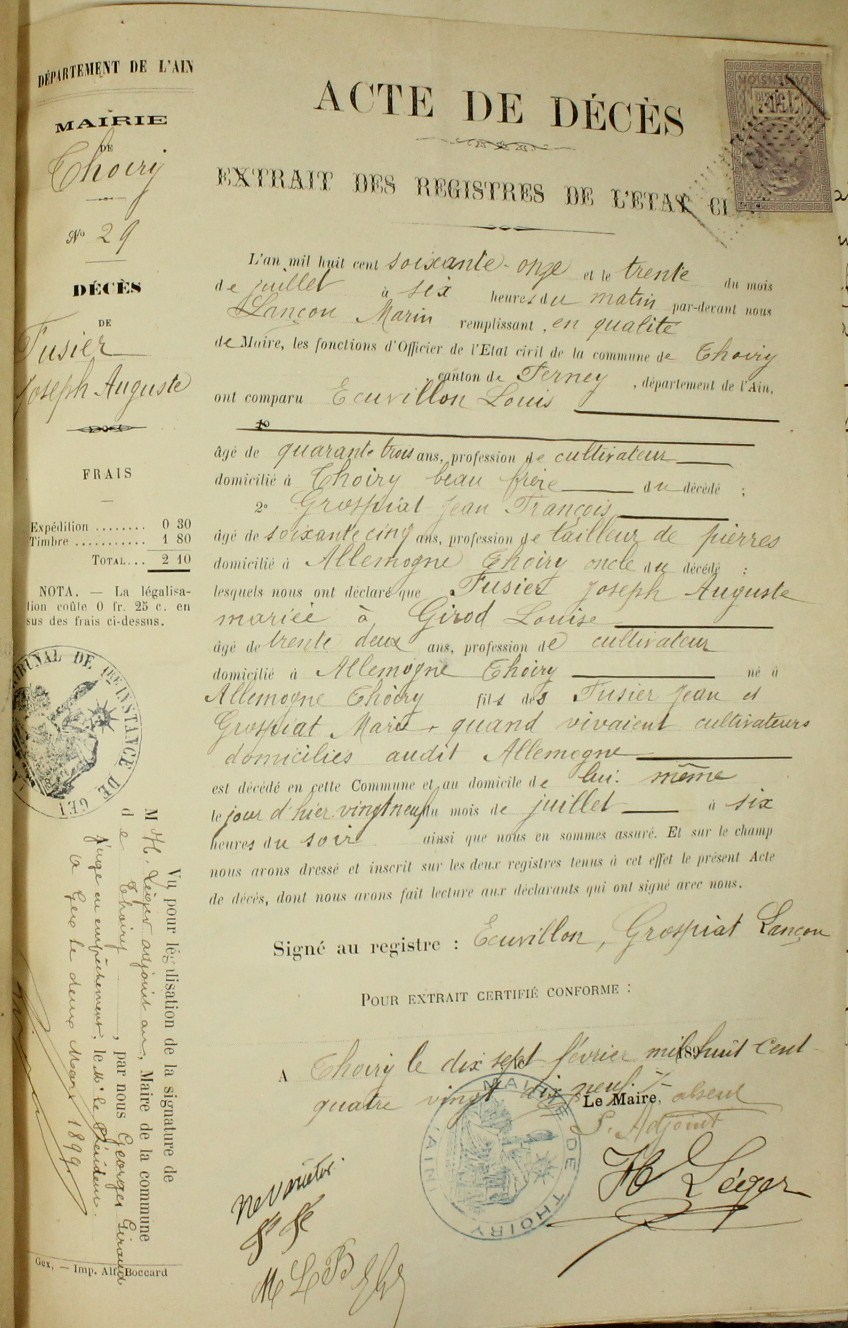 DÉPARTEMENT DE L'AIN
MAIRIE
DE
Thoiry
No 29
DÉCÈS
DE
Fusier
Joseph Auguste
FRAIS
Expédition ........ 0 30
Timbre ........... 1 80
TOTAL... 2 10
NOTA. — La légalisa-
tion coûte 0 fr. 25 c. en
sus des frais ci-dessus.
TRIBUNAL DE 1re INSTANCE DE GEX
Vu pour légalisation de la signature de
M H. Léger adjoint au, Maire de la commune
de Thoiry, par nous Georges Giraud
juge en empêchement, le Mr le Président
à Gex le deux Mars 1899
Gex, — Imp. Alf. Boccard
ACTE DE DÉCÈS
EXTRAIT DES REGISTRES DE L'ETAT CI
DIMENSION
L'an mil huit cent soixante-onze et le trente du mois
de juillet à six heures du matin par-devant nous
Lançon Marin remplissant, en qualité
de Maire, les fonctions d'Officier de l'Etat civil de la commune de Thoiry
canton de Ferney, département de l'Ain,
ont comparu Ecuvillon Louis
1o
âgé de quarante trois ans, profession de cultivateur
domicilié à Thoiry beau frère du décédé ;
2o Grospiat Jean François
âgé de soixante cinq ans, profession de tailleur de pierres
domicilié à Allemogne Thoiry oncle du décédé ;
lesquels nous ont déclaré que Fusier Joseph Auguste
mariée à Girod Louise
âgé de trente deux ans, profession de cultivateur
domicilié à Allemogne Thoiry né à
Allemogne Thoiry fils des Fusier Jean et
Grospiat Marie quand vivaient cultivateurs
domiciliés audit Allemogne
est décédé en cette Commune et au domicile de lui-même
le jour d'hier vingt neuf du mois de juillet à six
heures du soir ainsi que nous en sommes assuré. Et sur le champ
nous avons dressé et inscrit sur les deux registres tenus à cet effet le présent Acte
de décès, dont nous avons fait lecture aux déclarants qui ont signé avec nous.
Signé au registre : Ecuvillon, Grospiat Lançon
POUR EXTRAIT CERTIFIÉ CONFORME :
A Thoiry le dix sept février mil huit cent
quatre vingt dix neuf.
Le Maire, absent
L'Adjoint
H Léger
MAIRIE DE THOIRY
AIN
Ne varietur